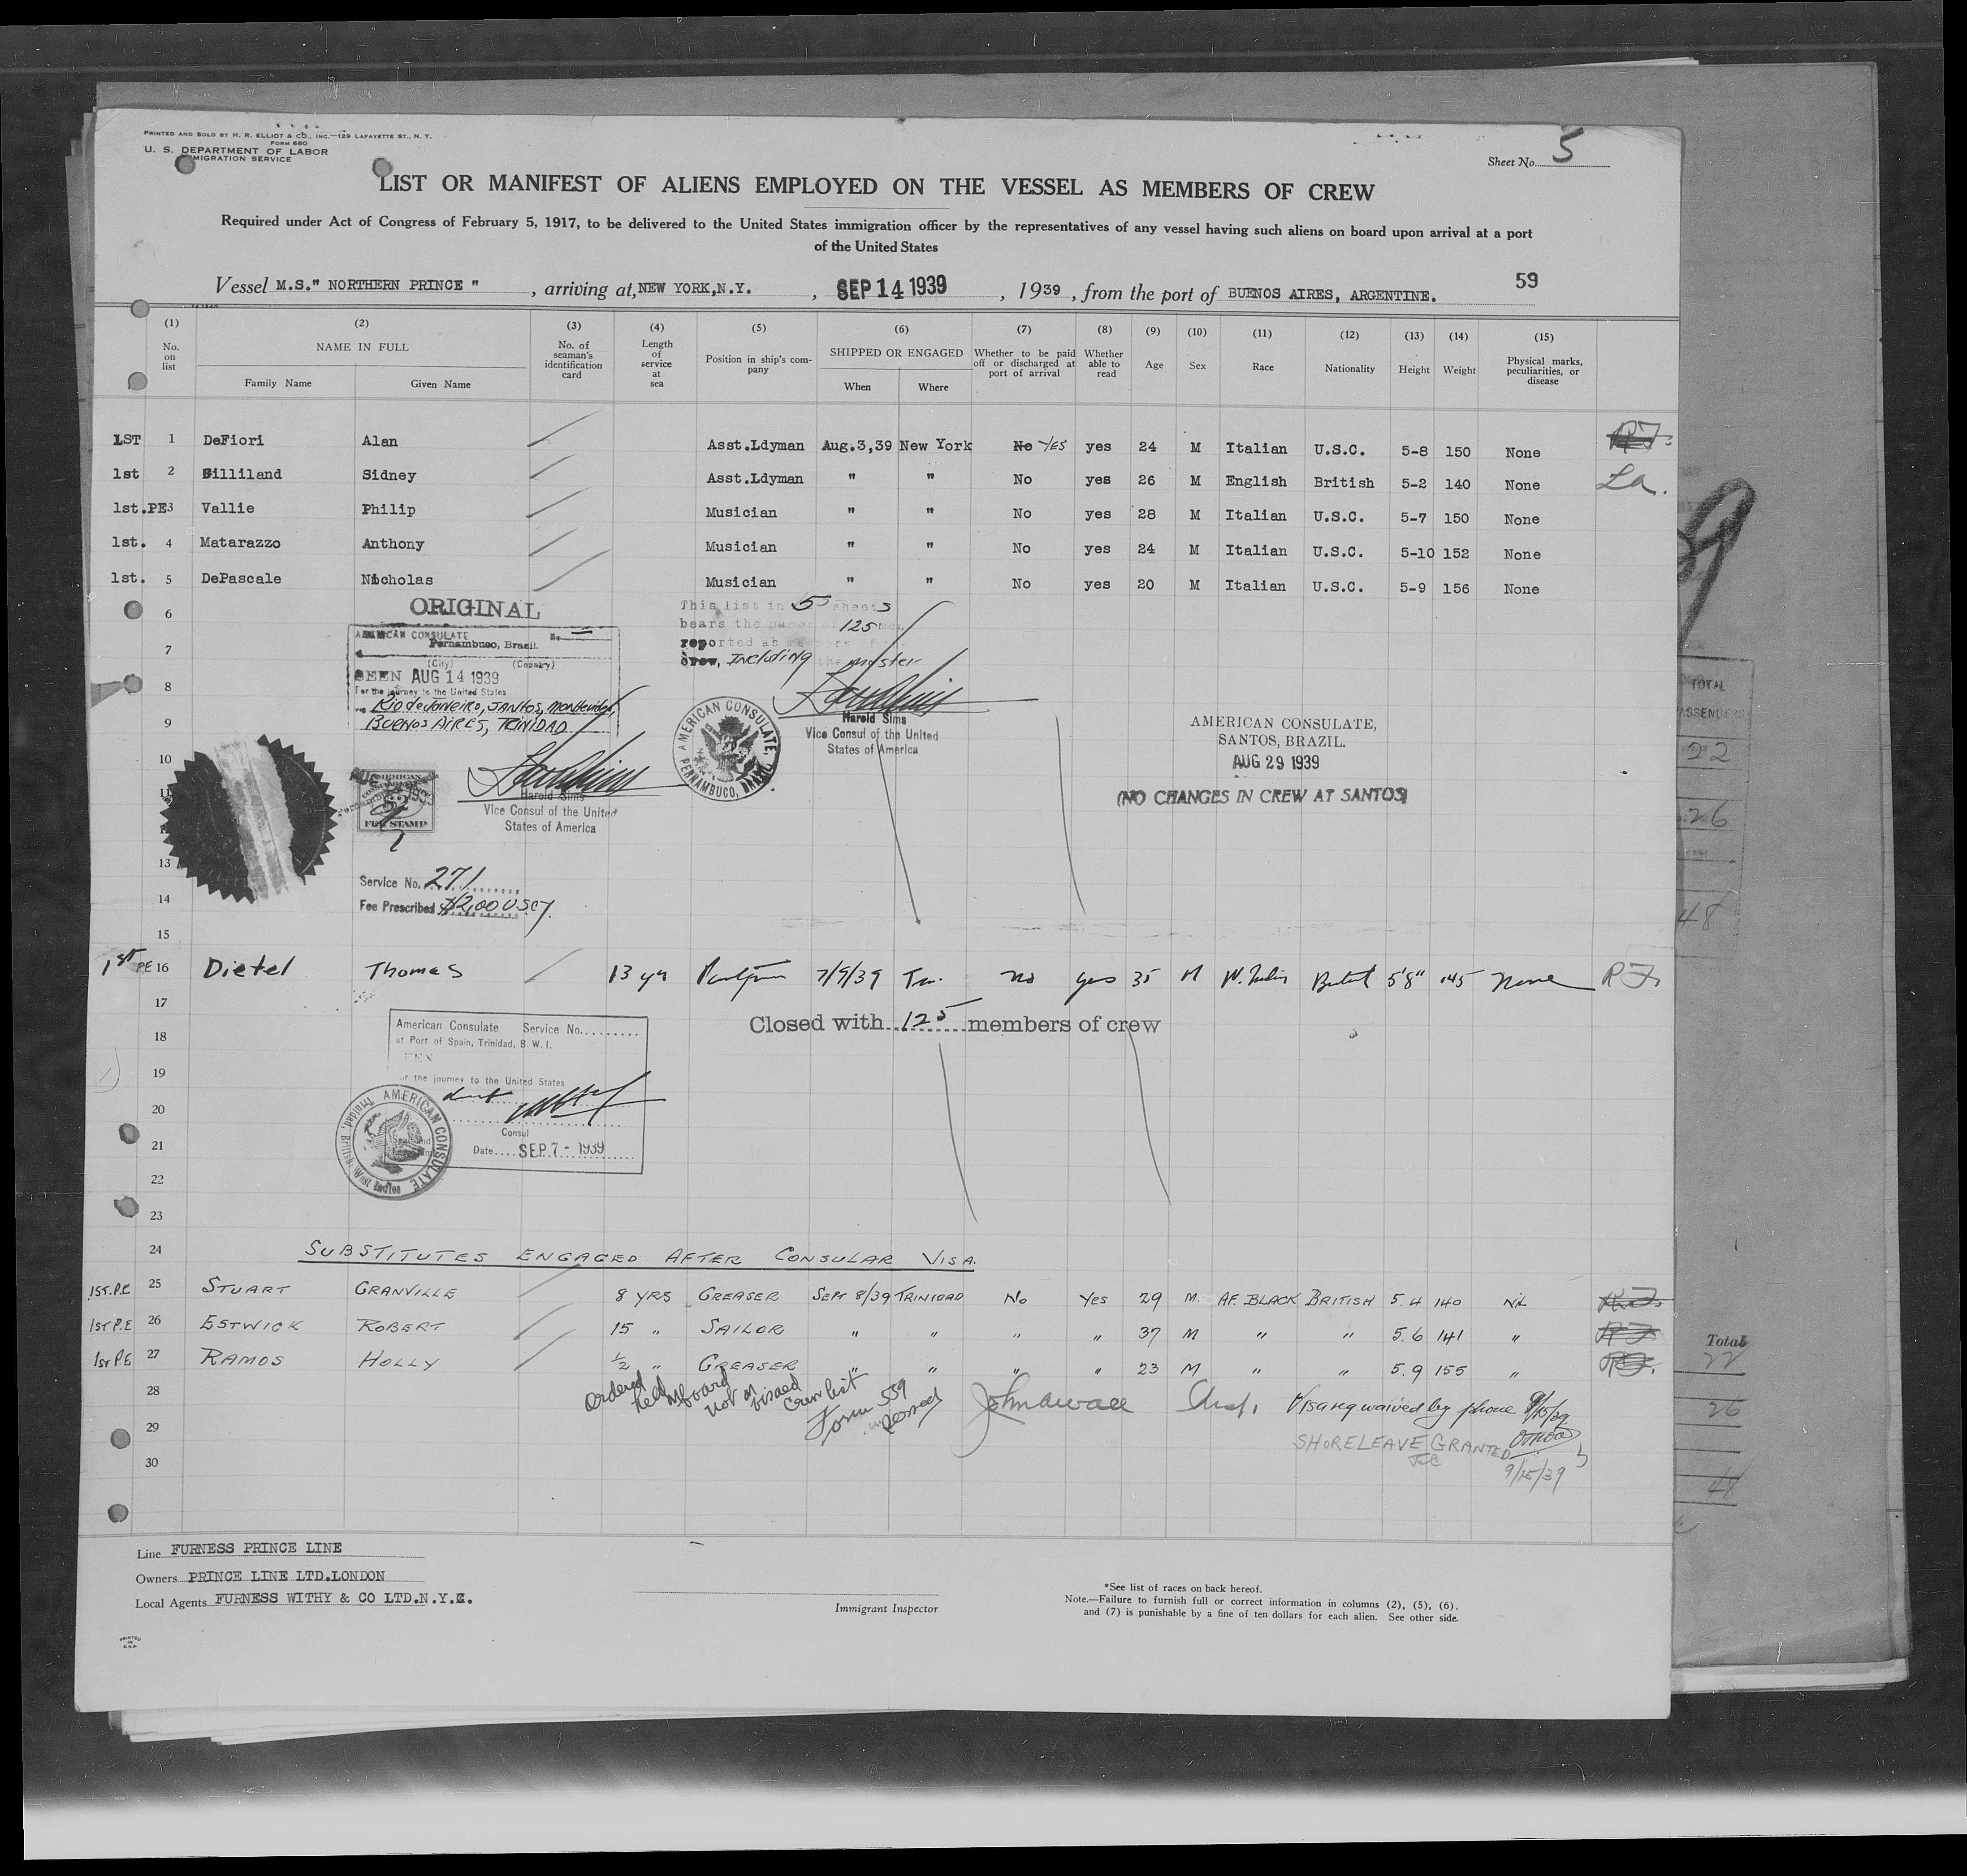 PRINTED AND SOLD BY H. R. ELLIOT & CO., INC.—129 LAFAYETTE ST., N. Y.
FORM 680
U. S. DEPARTMENT OF LABOR
IMMIGRATION SERVICE
Sheet No. 5
LIST OR MANIFEST OF ALIENS EMPLOYED ON THE VESSEL AS MEMBERS OF CREW
Required under Act of Congress of February 5, 1917, to be delivered to the United States immigration officer by the representatives of any vessel having such aliens on board upon arrival at a port
of the United States
Vessel M.S." NORTHERN PRINCE ", arriving at, NEW YORK,N.Y., SEP 14 1939, 1939, from the port of BUENOS AIRES, ARGENTINE. 59
(1) (2) (3) (4) (5) (6) (7) (8) (9) (10) (11) (12) (13) (14) (15)
No. on list NAME IN FULL No. of seaman's identification card Length of service at sea Position in ship's company SHIPPED OR ENGAGED Whether to be paid off or discharged at port of arrival Whether able to read Age Sex Race Nationality Height Weight Physical marks, peculiarities, or disease
Family Name Given Name When Where
1ST 1 DeFiori Alan Asst.Ldyman Aug.3,39 New York No YES yes 24 M Italian U.S.C. 5-8 150 None
1st 2 Gilliland Sidney Asst.Ldyman " " No yes 26 M English British 5-2 140 None La.
1st.PE 3 Vallie Philip Musician " " No yes 28 M Italian U.S.C. 5-7 150 None
1st. 4 Matarazzo Anthony Musician " " No yes 24 M Italian U.S.C. 5-10 152 None
1st. 5 DePascale Nicholas Musician " " No yes 20 M Italian U.S.C. 5-9 156 None
6
7
8
9
10
11
12
13
14
15
ORIGINAL
AMERICAN CONSULATE No. —
Pernambuco, Brazil.
(City) (Country)
SEEN AUG 14 1939
For the journey to the United States
Rio de Janeiro, Santos, Montevideo,
BUENOS AIRES, TRINIDAD
Harold Sims
Vice Consul of the United
States of America
AMERICAN
$2
FEE STAMP
Service No. 271
Fee Prescribed $2.00 USCy.
This list in 5 sheets
bears the names of 125 men
reported as members of
crew, Including the master
Harold Sims
Vice Consul of the United
States of America
AMERICAN CONSULATE, PERNAMBUCO, BRAZIL.
AMERICAN CONSULATE,
SANTOS, BRAZIL.
AUG 29 1939
(NO CHANGES IN CREW AT SANTOS)
1st PE 16 Dietel Thomas 13 yrs 7/9/39 No yes 35 M 5'8" 145 None R.J.
17
18
19
20
21
22
23
Closed with 125 members of crew
American Consulate Service No.
at Port of Spain, Trinidad, B. W. I.
SEEN
For the journey to the United States
Consul
Date SEP 7 - 1939
AMERICAN CONSULATE Trinidad, British West Indies
24 SUBSTITUTES ENGAGED AFTER CONSULAR VISA.
1ST.P.E 25 STUART GRANVILLE 8 YRS GREASER SEPT 8/39 TRINIDAD No Yes 29 M. AF. BLACK BRITISH 5.4 140 NIL
1ST P.E 26 ESTWICK ROBERT 15 " SAILOR " " " " 37 M " " 5.6 141 "
1ST P.E 27 RAMOS HOLLY ½ " GREASER " " " " 23 M " " 5.9 155 "
28
29
30
Ordered
held aboard
not on
visaed
crew list
Form 539
served
Visa req waived by phone 9/15/39
SHORE LEAVE GRANTED
9/15/39
Line FURNESS PRINCE LINE
Owners PRINCE LINE LTD.LONDON
Local Agents FURNESS WITHY & CO LTD.N.Y.C.
Immigrant Inspector
*See list of races on back hereof.
Note.—Failure to furnish full or correct information in columns (2), (5), (6),
and (7) is punishable by a fine of ten dollars for each alien. See other side.
PRINTED
IN
U.S.A.
TOTAL
PASSENGERS
22
26
48
Total
22
26
48